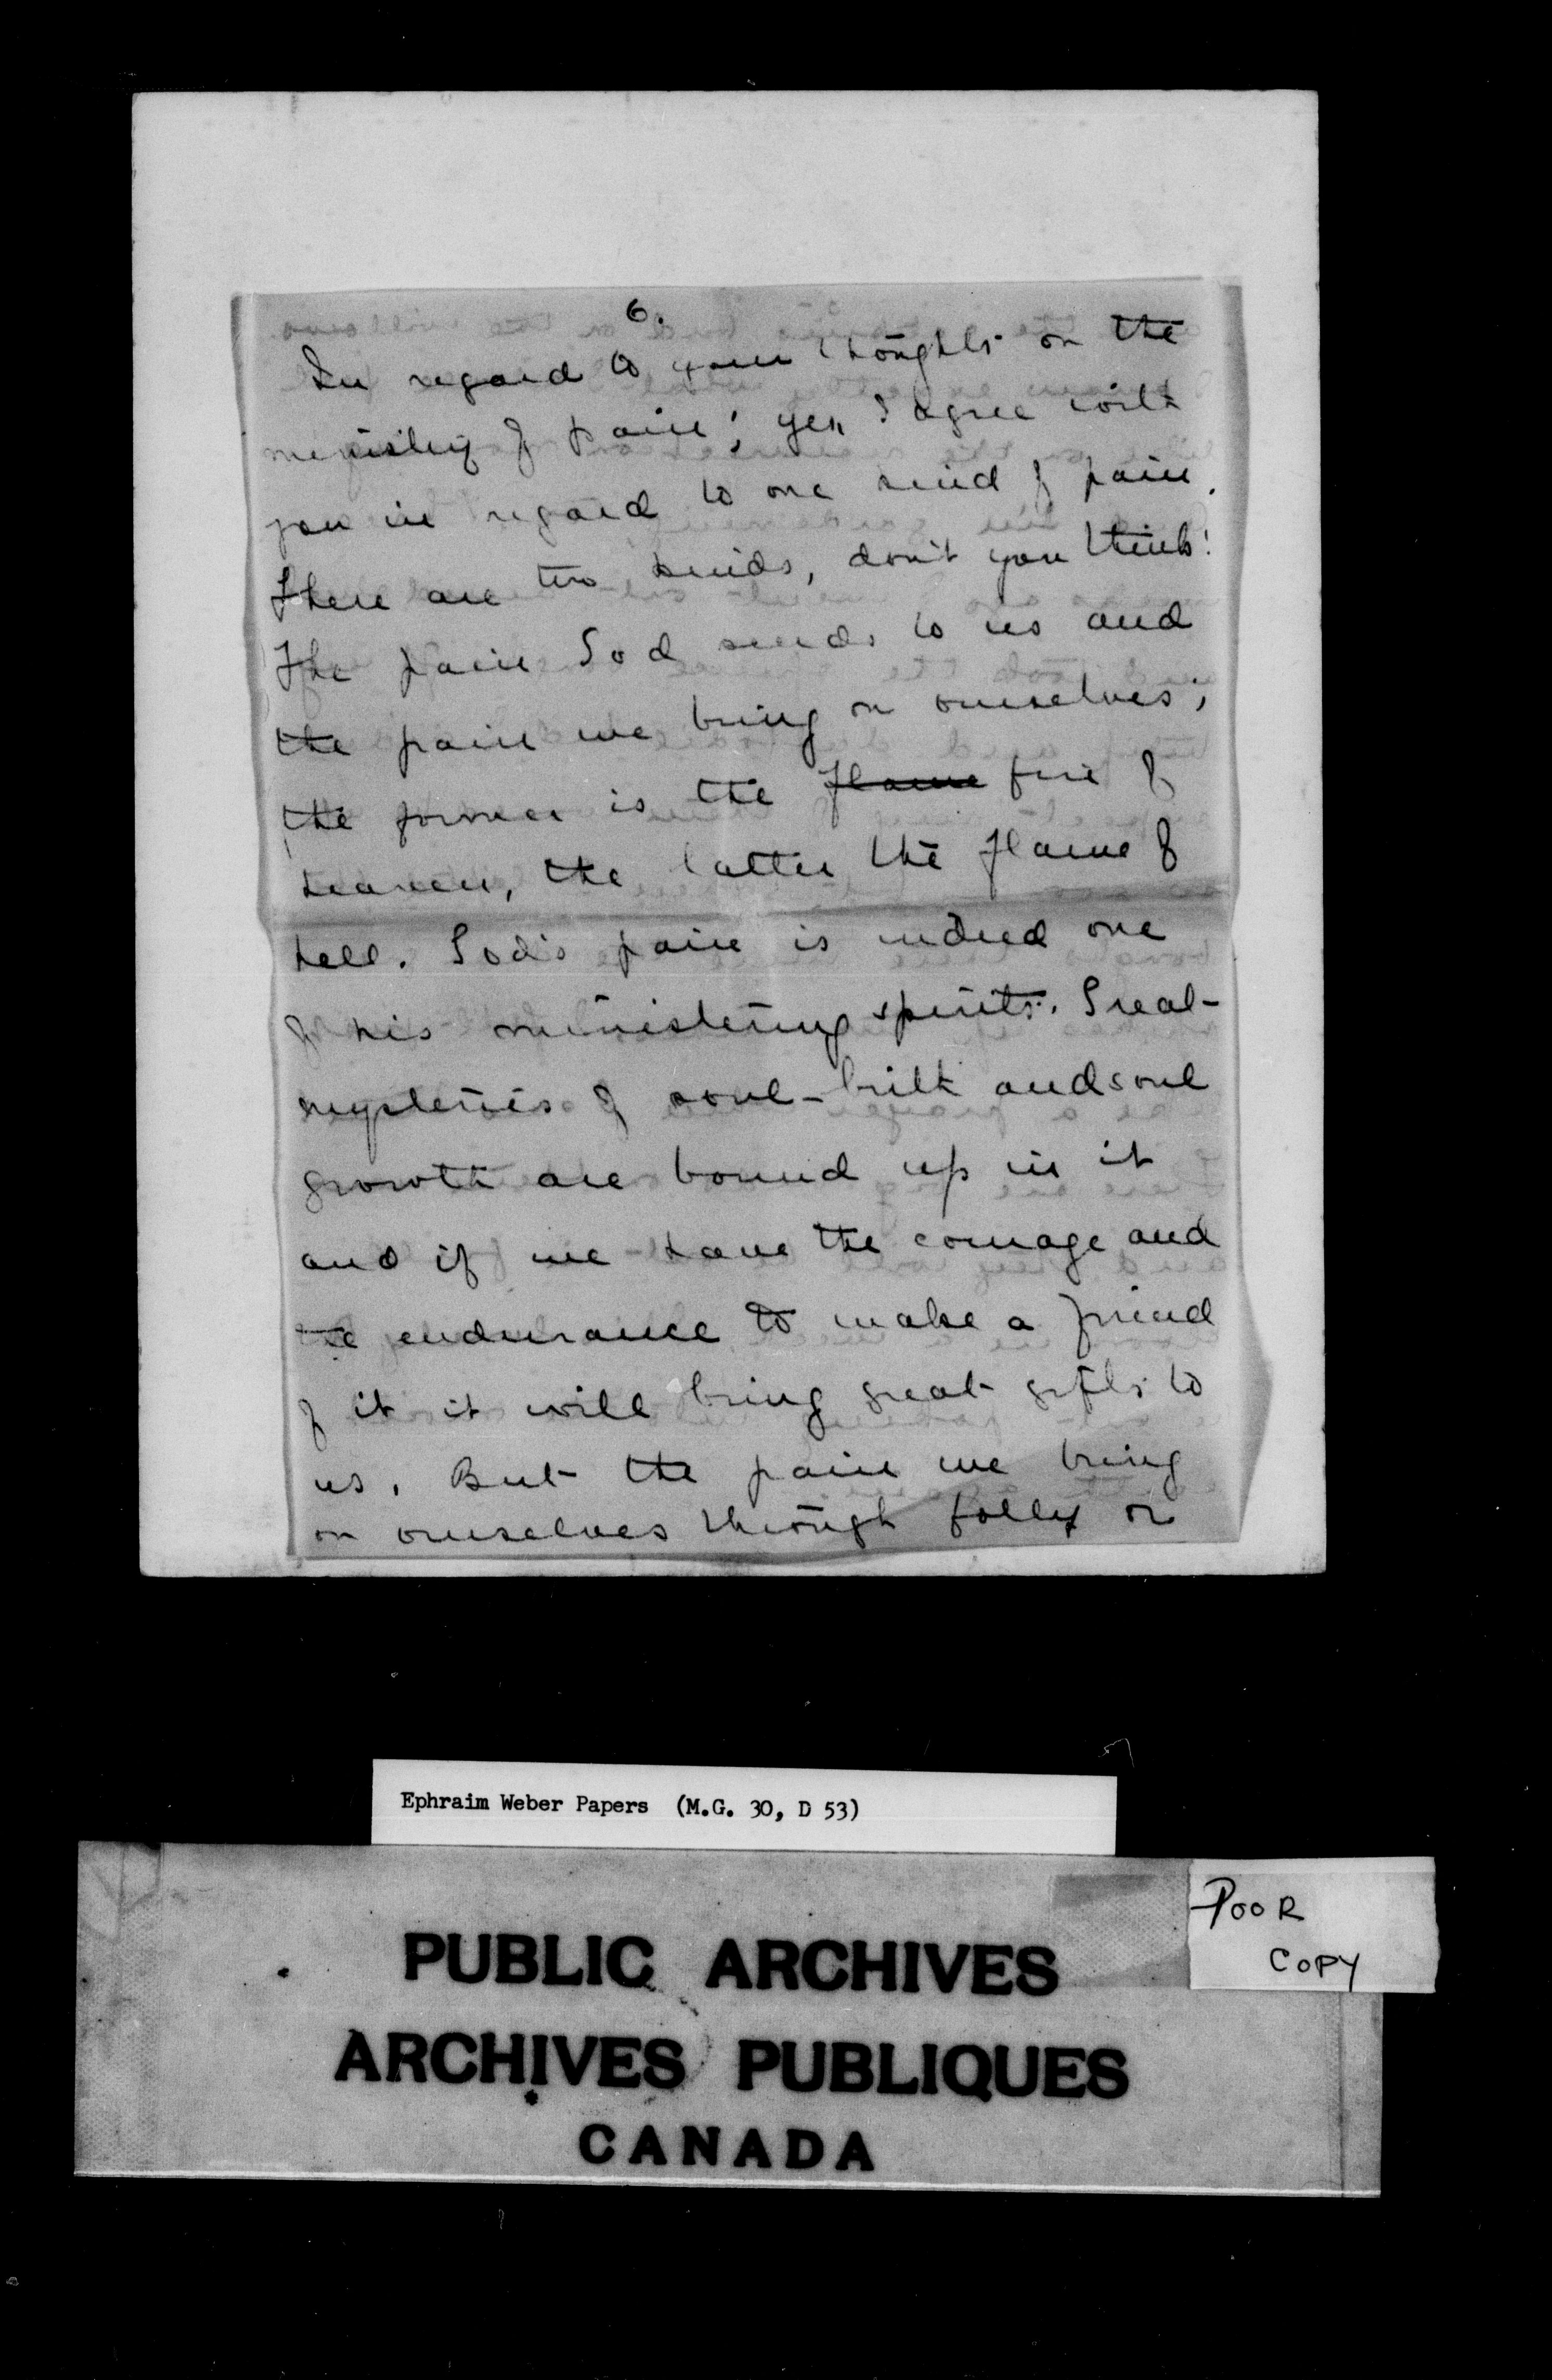 6.
In regard to your thoughts on the
ministry of pain; yes I agree with
you in regard to one kind of pain.
There are two kinds, don't you think!
The pain God sends to us and
the pain we bring on ourselves;
the former is the flame fire of
heaven, the latter the flame of
hell. God's pain is indeed one
of his ministering spirits. Great
mysteries of soul-birth and soul
growth are bound up in it
and if we have the courage and
the endurance to make a friend
of it it will bring great gifts to
us. But the pain we bring
on ourselves through folly or
Ephraim Weber Papers (M.G. 30, D 53)
POOR
COPY
PUBLIC ARCHIVES
ARCHIVES PUBLIQUES
CANADA